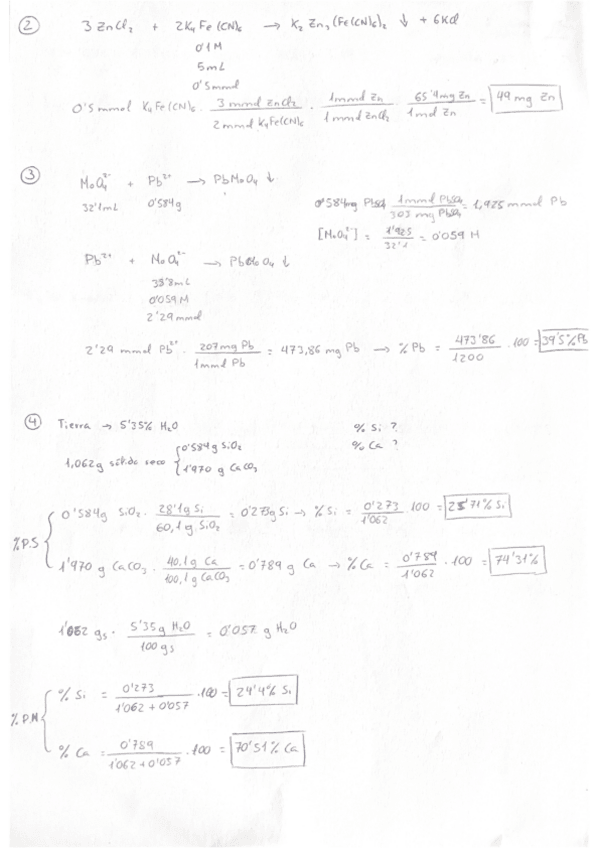 ② 3 ZnCl₂ + 2K₄Fe(CN)₆ → K₂Zn₃(Fe(CN)₆)₂ ↓ + 6KCl
0'1M
5mL
0'5mmol
0'5mmol K₄Fe(CN)₆ · 3 mmol ZnCl₂ / 2 mmol K₄Fe(CN)₆ · 1 mmol Zn / 1 mmol ZnCl₂ · 65'4mg Zn / 1 mol Zn = 49 mg Zn
③ MoO₄²⁻ + Pb²⁺ → PbMoO₄ ↓
32'1mL 0'584g
0'584mg PbSO₄ 1mmol PbSO₄ / 303 mg PbSO₄ = 1,925 mmol Pb
[MoO₄²⁻] = 1'925 / 32'1 = 0'059 M
Pb²⁺ + MoO₄²⁻ → PbMoO₄ ↓
38'8mL
0'059M
2'29 mmol
2'29 mmol Pb²⁺ · 207mg Pb / 1mmol Pb = 473,86 mg Pb → % Pb = 473'86 / 1200 · 100 = 39'5 % Pb
④ Tierra → 5'35% H₂O
% Si ?
% Ca ?
1,062g sólido seco { 0'584g SiO₂
1'970 g CaCO₃
% P.S
0'584g SiO₂ · 28'1g Si / 60,1 g SiO₂ = 0'273g Si → % Si = 0'273 / 1'062 · 100 = 25'71% Si
1'970 g CaCO₃ · 40,1 g Ca / 100,1 g CaCO₃ = 0'789 g Ca → % Ca = 0'789 / 1'062 · 100 = 74'31%
1'062 gs · 5'35g H₂O / 100 gs = 0'057 g H₂O
% P.H
% Si = 0'273 / 1'062 + 0'057 · 100 = 24'4% Si
% Ca = 0'789 / 1'062 + 0'057 · 100 = 70'51% Ca